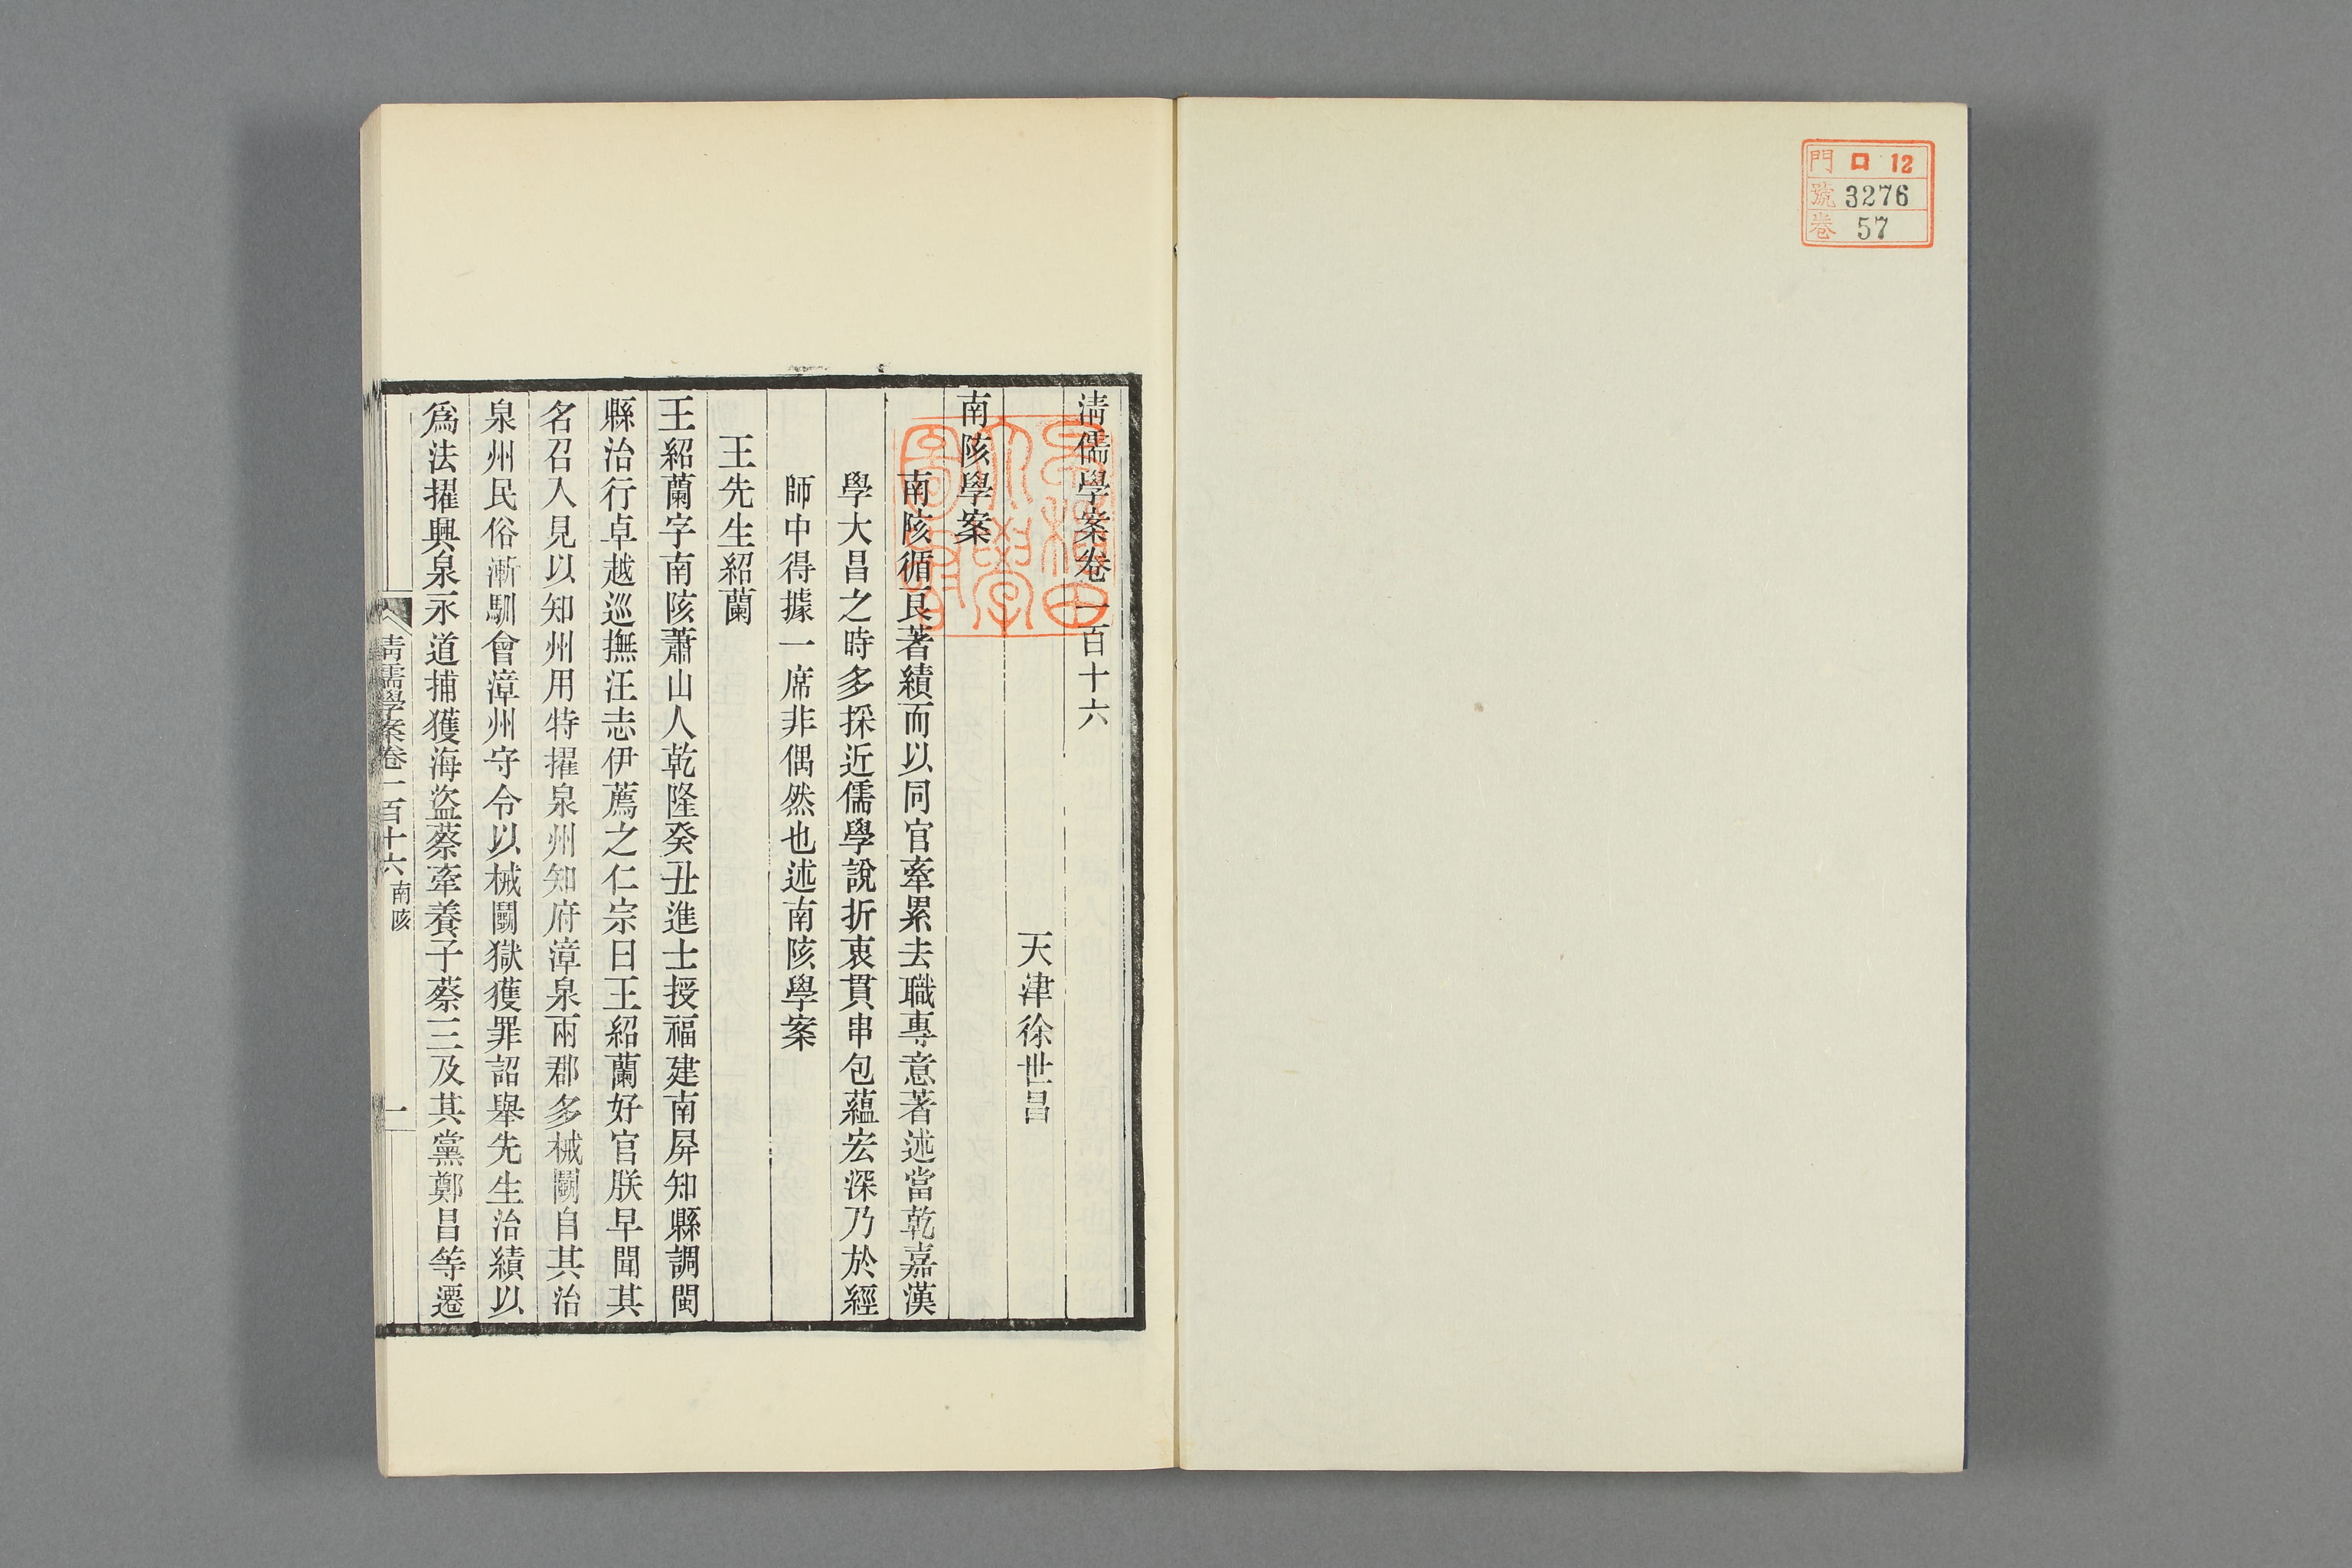 門 ロ 12
號 3276
卷 57
清儒學案卷一百十六
天津徐世昌
南陔學案
南陔循良著績而以同官牽累去職專意著述當乾嘉漢
學大昌之時多採近儒學說折衷貫串包蘊宏深乃於經
師中得據一席非偶然也述南陔學案
王先生紹蘭
王紹蘭字南陔蕭山人乾隆癸丑進士授福建南屏知縣調閩
縣治行卓越巡撫汪志伊薦之仁宗曰王紹蘭好官朕早聞其
名召入見以知州用特擢泉州知府漳泉兩郡多械鬭自其治
泉州民俗漸馴會漳州守令以械鬭獄獲罪詔舉先生治績以
爲法擢興泉永道捕獲海盜蔡牽養子蔡三及其黨鄭昌等遷
清儒學案卷一百十六 南陔
一
早稻田大學圖書